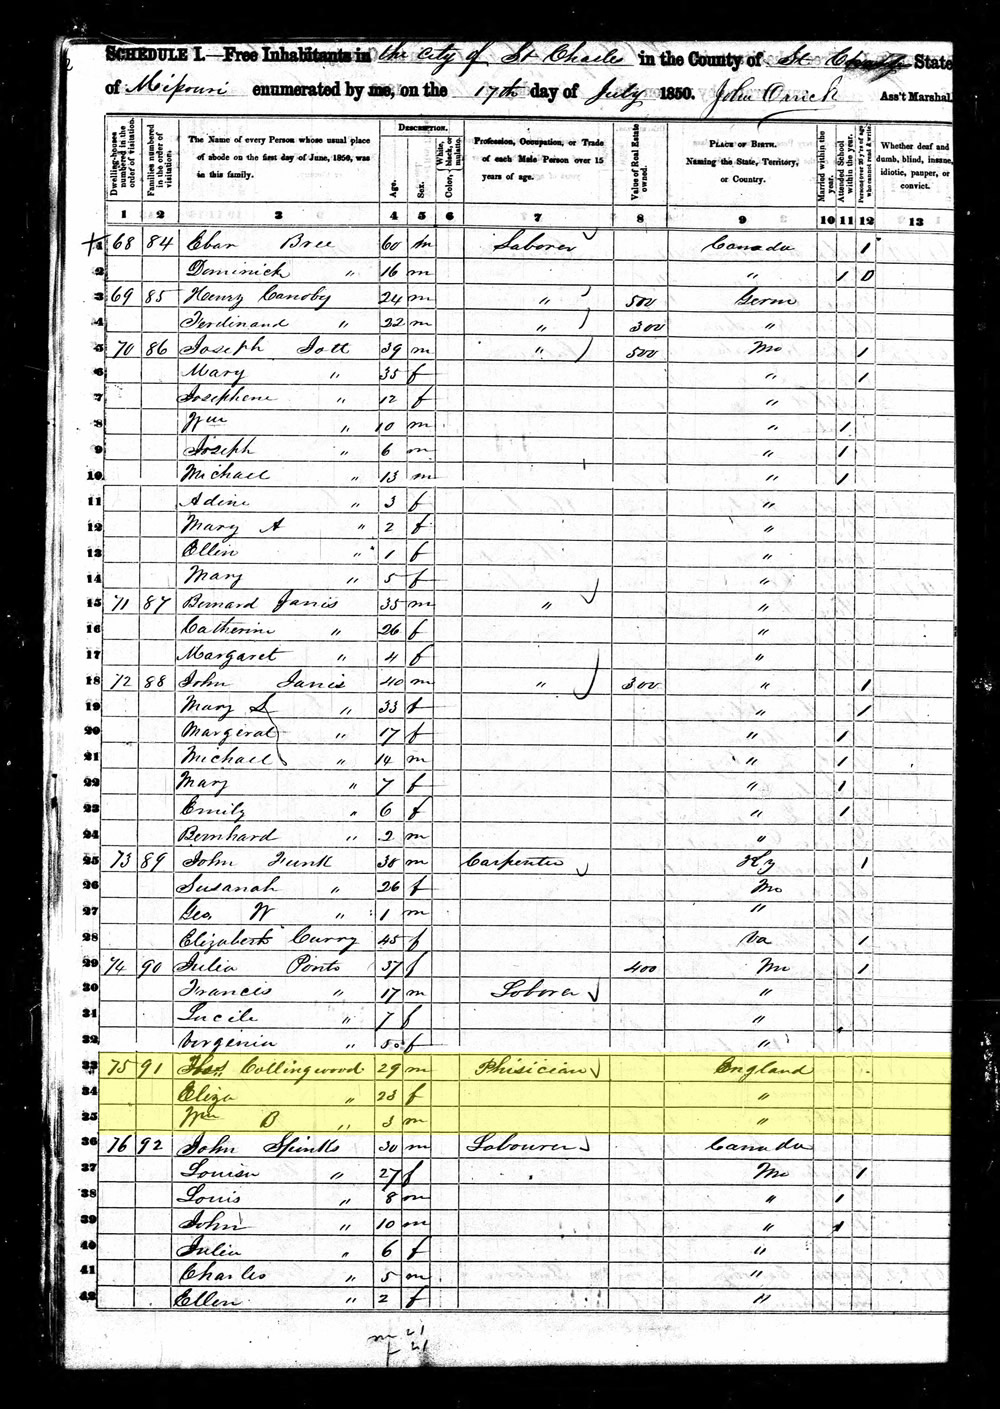 SCHEDULE I.—Free Inhabitants in the City of St Charles in the County of St Charles State
of Missouri enumerated by me, on the 17th day of July 1850. John Orrick Ass't Marshal.
Dwelling-houses numbered in the order of visitation.
Families numbered in the order of visitation.
The Name of every Person whose usual place of abode on the first day of June, 1850, was in this family.
DESCRIPTION.
Age.
Sex.
Color, White, black, or mulatto.
Profession, Occupation, or Trade of each Male Person over 15 years of age.
Value of Real Estate owned.
PLACE OF BIRTH. Naming the State, Territory, or Country.
Married within the year.
Attended School within the year.
Persons over 20 y'rs of age who cannot read & write.
Whether deaf and dumb, blind, insane, idiotic, pauper, or convict.
1 2 3 4 5 6 7 8 9 10 11 12 13
1 68 84 Eban Bree 60 m Laborer Canada 1
2 Dominick " 16 m " 1 0
3 69 85 Henry Canoby 24 m " 500 Germ
4 Ferdinand " 22 m " 300 "
5 70 86 Joseph Jott 39 m " 500 Mo 1
6 Mary " 35 f " 1
7 Josephene " 12 f "
8 Wm " 10 m " 1
9 Joseph " 6 m " 1
10 Michael " 13 m " 1
11 Adine " 3 f "
12 Mary A " 2 f "
13 Ellin " 1 f "
14 Mary " 5 f "
15 71 87 Bernard Janis 35 m " "
16 Catherine " 26 f "
17 Margaret " 4 f "
18 72 88 John Janis 40 m " 300 " 1
19 Mary L " 33 f " 1
20 Margeret " 17 f " 1
21 Michael " 14 m " 1
22 Mary " 7 f " 1
23 Emily " 6 f " 1
24 Bernhard " 2 m "
25 73 89 John Funk 30 m Carpenter Ky 1
26 Susanah " 26 f Mo
27 Geo W " 1 m "
28 Elizabeth Curry 45 f Va 1
29 74 90 Julia Ponts 37 f 400 Mo 1
30 Frances " 17 m Laborer "
31 Lucile " 7 f "
32 Virginia " 5 f "
33 75 91 Thos Collingwood 29 m Phisician England
34 Eliza " 23 f "
35 Wm B " 3 m "
36 76 92 John Spinks 30 m Labourer Canada
37 Louisa " 27 f Mo 1
38 Louis " 8 m " 1
39 John " 10 m " 1
40 Julia " 6 f "
41 Charles " 5 m "
42 Ellen " 2 f "
m 21
f 21